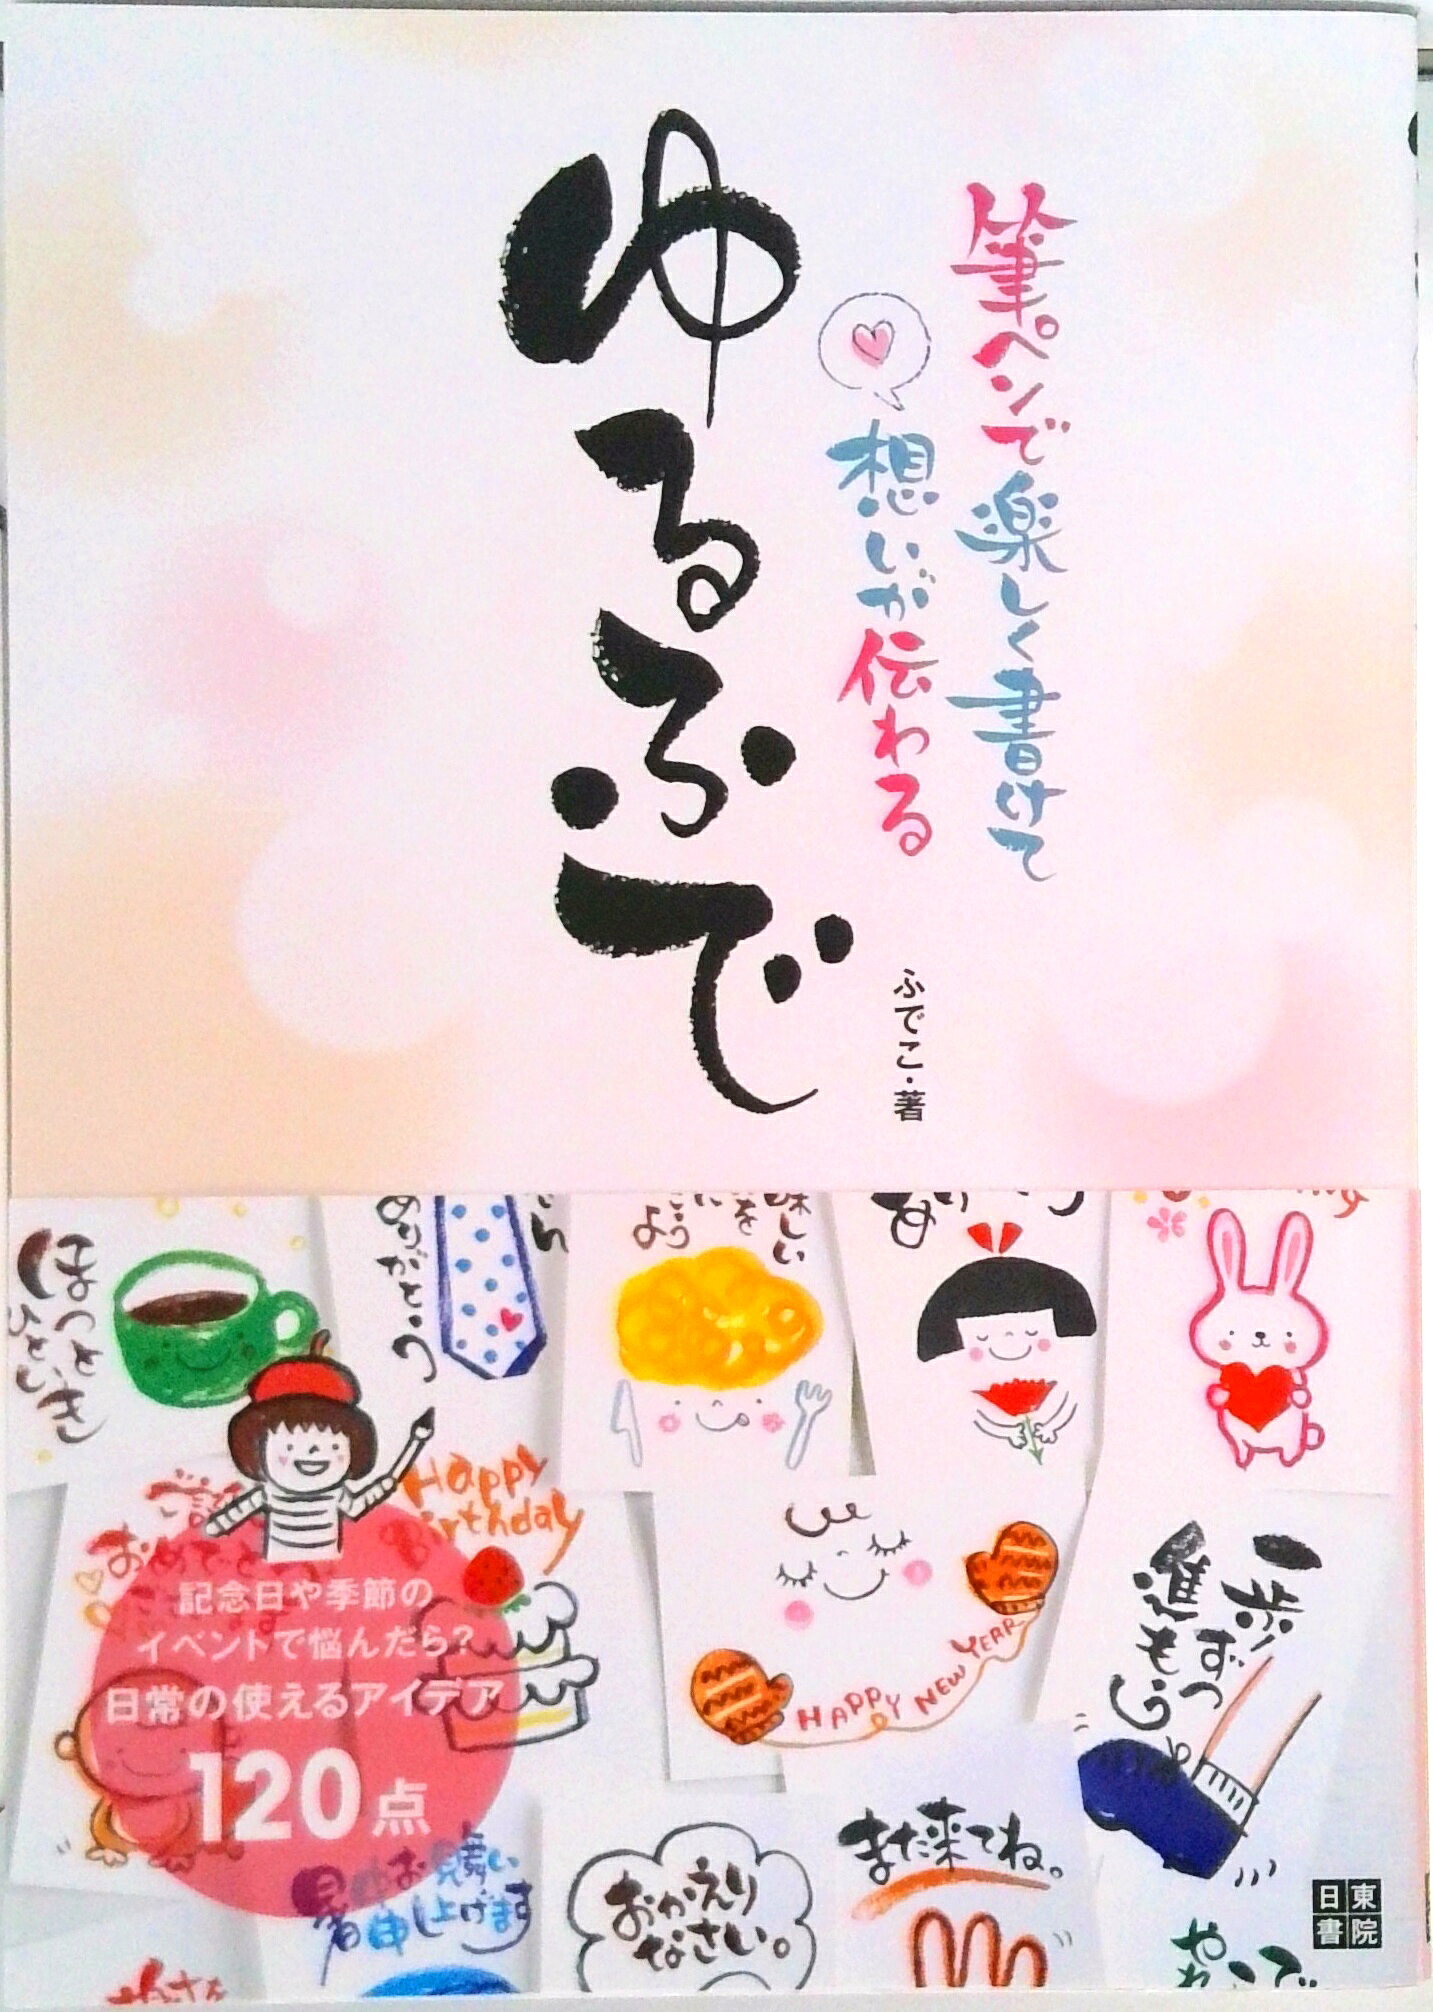 筆ペンで楽しく書けて
想いが伝わる
ゆるふで
ふでこ・著
ほっと
ひといき
ありがとう
味しい
を
よう
Happy
Birthday
おめでとう
記念日や季節の
イベントで悩んだら?
日常の使えるアイデア
120点
HAPPY NEW YEAR
一歩ずつ
進もう
暑中お見舞い
申し上げます
おかえり
なさい。
また来てね。
日東
書院